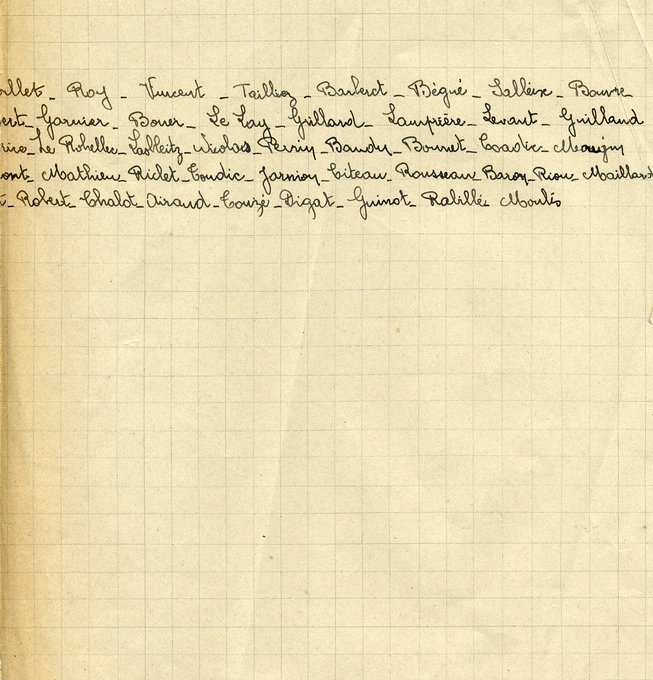 illet _ Roy _ Vincent _ Tailliez _ Barberet _ Bégué _ Salleix _ Bouvre _
bert _ Garnier _ Boner _ Le Lay _ Grillard _ Lamprière _ Levant _ Guilland
rice _ Le Robellec _ Nicolas _ Perrin _ Baudu _ Bonnet _ Coadic _ Maugin
ont _ Mathieu _ Riclet _ Coudic _ Jarnion _ Citeau _ Rousseau _ Baron _ Riou _ Maillard
t _ Robert _ Chalot _ Airaud _ Couzé _ Digat _ Guinot _ Rabillé _ Moulés